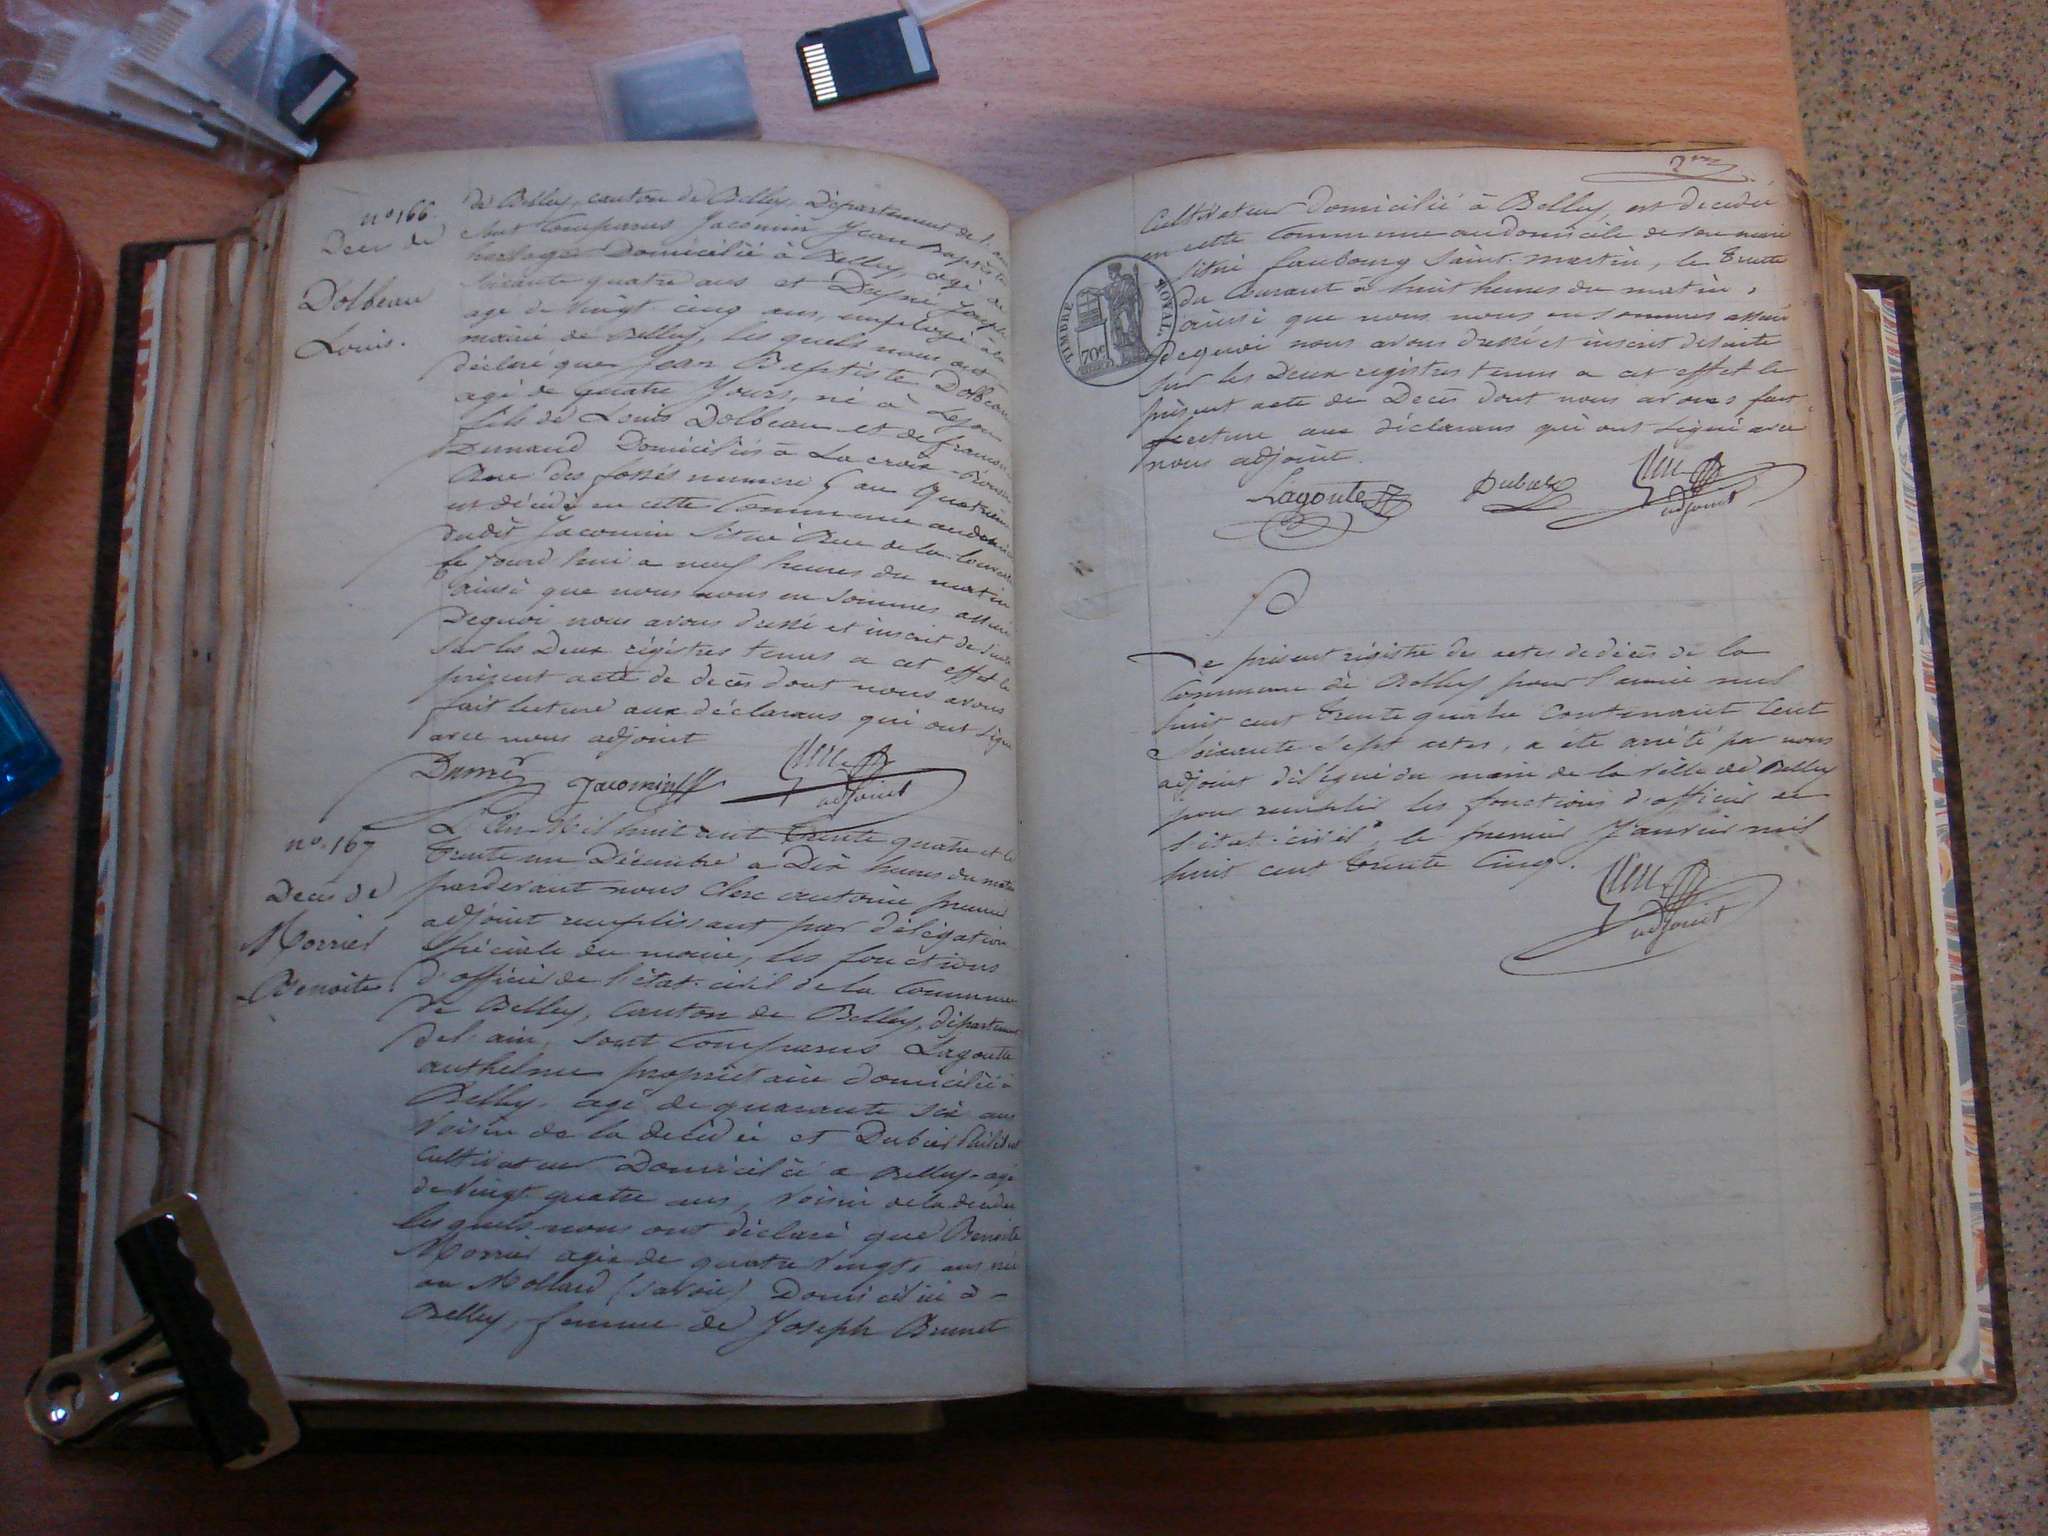 n° 166.
Decès de
Dolbeau
Louis.
de Belley, canton de Belley, Département de l'ain
sont Comparus Jacomin Jean Baptiste
horloger Domicilié à Belley, agé de
soixante quatre ans et Dupré Joseph
agé de Vingt cinq ans, employé à la
mairie de Belley, les quels nous ont
déclaré que Jean Baptiste Dolbeau
agé de quatre Jours, né à Lyon
fils de Louis Dolbeau et de françoise
Durand Domiciliés à La croix-Rousse
Rue des fossés numero 5 au Quatrieme
est décédé en cette Commune au domicile
dudit Jacomin situé Rue de la
ce Jourd'hui a neuf heures du matin
ainsi que nous nous en sommes assuré
Dequoi nous avons dressé et inscrit de suite
sur les Deux régistres tenus a cet effet le
présent acte de decès dont nous avons
fait lecture aux déclarans qui ont signé
avec nous adjoint
Jacomin
adjoint
n° 167
Decès de
Morrier
Benoite.
L'An Mil huit cent trente quatre et le
trente un Décembre a Dix heures du matin
pardevant nous Clerc antoine premier
adjoint remplissant par délégation
spéciale du maire, les fonctions
d'officier de l'état-civil de la Commune
de Belley, Canton de Belley, département
de l'ain, sont Comparus Lagoutte
anthelme propriétaire domicilié à
Belley, agé de quarante six ans
Voisin de la décédée et Dubier
Cultivateur Domicilié a Belley agé
de Vingt quatre ans, Voisin de la décédée
les quels nous ont déclaré que Benoite
Morrier agée de quatre Vingts ans, née
au Mollard (savoie) Domiciliée à
Belley, femme de Joseph Brunet
Cultivateur Domicilié à Belley, est décédée
en cette Commune au domicile de son mari
situé faubourg Saint-martin, le trente
du Courant à huit heures du matin,
ainsi que nous nous en sommes assuré
dequoi nous avons dressé et inscrit desuite
sur les Deux registres tenus a cet effet le
présent acte de Decès dont nous avons fait
lecture aux déclarans qui ont signé avec
nous adjoint.
TIMBRE ROYAL.
70c
Lagoutte
adjoint
Le présent régistre des actes de décès de la
Commune de Belley pour l'année mil
huit cent trente quatre Contenant Cent
soixante sept actes, a été arrêté par nous
adjoint délégué du maire de la Ville de Belley
pour remplir les fonctions d'officier de
l'état-civil, le premier Janvier mil
huit cent trente Cinq.
adjoint